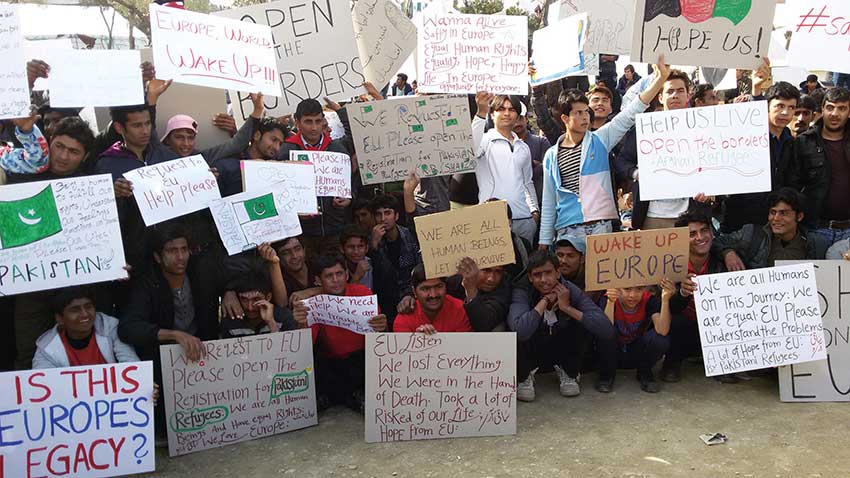 EUROPE, WORLD,
WAKE UP!!!
OPEN
THE
BORDERS
Wanna Alive
Safty in Europe
Equal Human Rights
Equality, Hope, Happy
Life In Europe
HELPE US!
#Sa
We Request to
EU. Please open the
Registration for
Pakistan
HELP US LIVE
Open the borders
-AFGHAN REFUGEES-
Request to
EU Help Please
PAKISTAN
WE ARE ALL
HUMAN BEINGS
LET US SURVIVE
WAKE UP
EUROPE
We are all Human
on This Journey: We
are Equal: EU Please
Understand the Problems
A lot of Hope from EU:
By Pakistani Refugees
EU we need
HELP
IS THIS
EUROPE'S
LEGACY?
We Request to EU
Please open the
Registration for Pakistani
Refugees: we are all Human
Beings And Have equal Rights
We Love Europe:
EU Listen
We Lost Everything
We were in the Hand
of Death: Took a lot of
Risked of our Life:
Hope from EU: